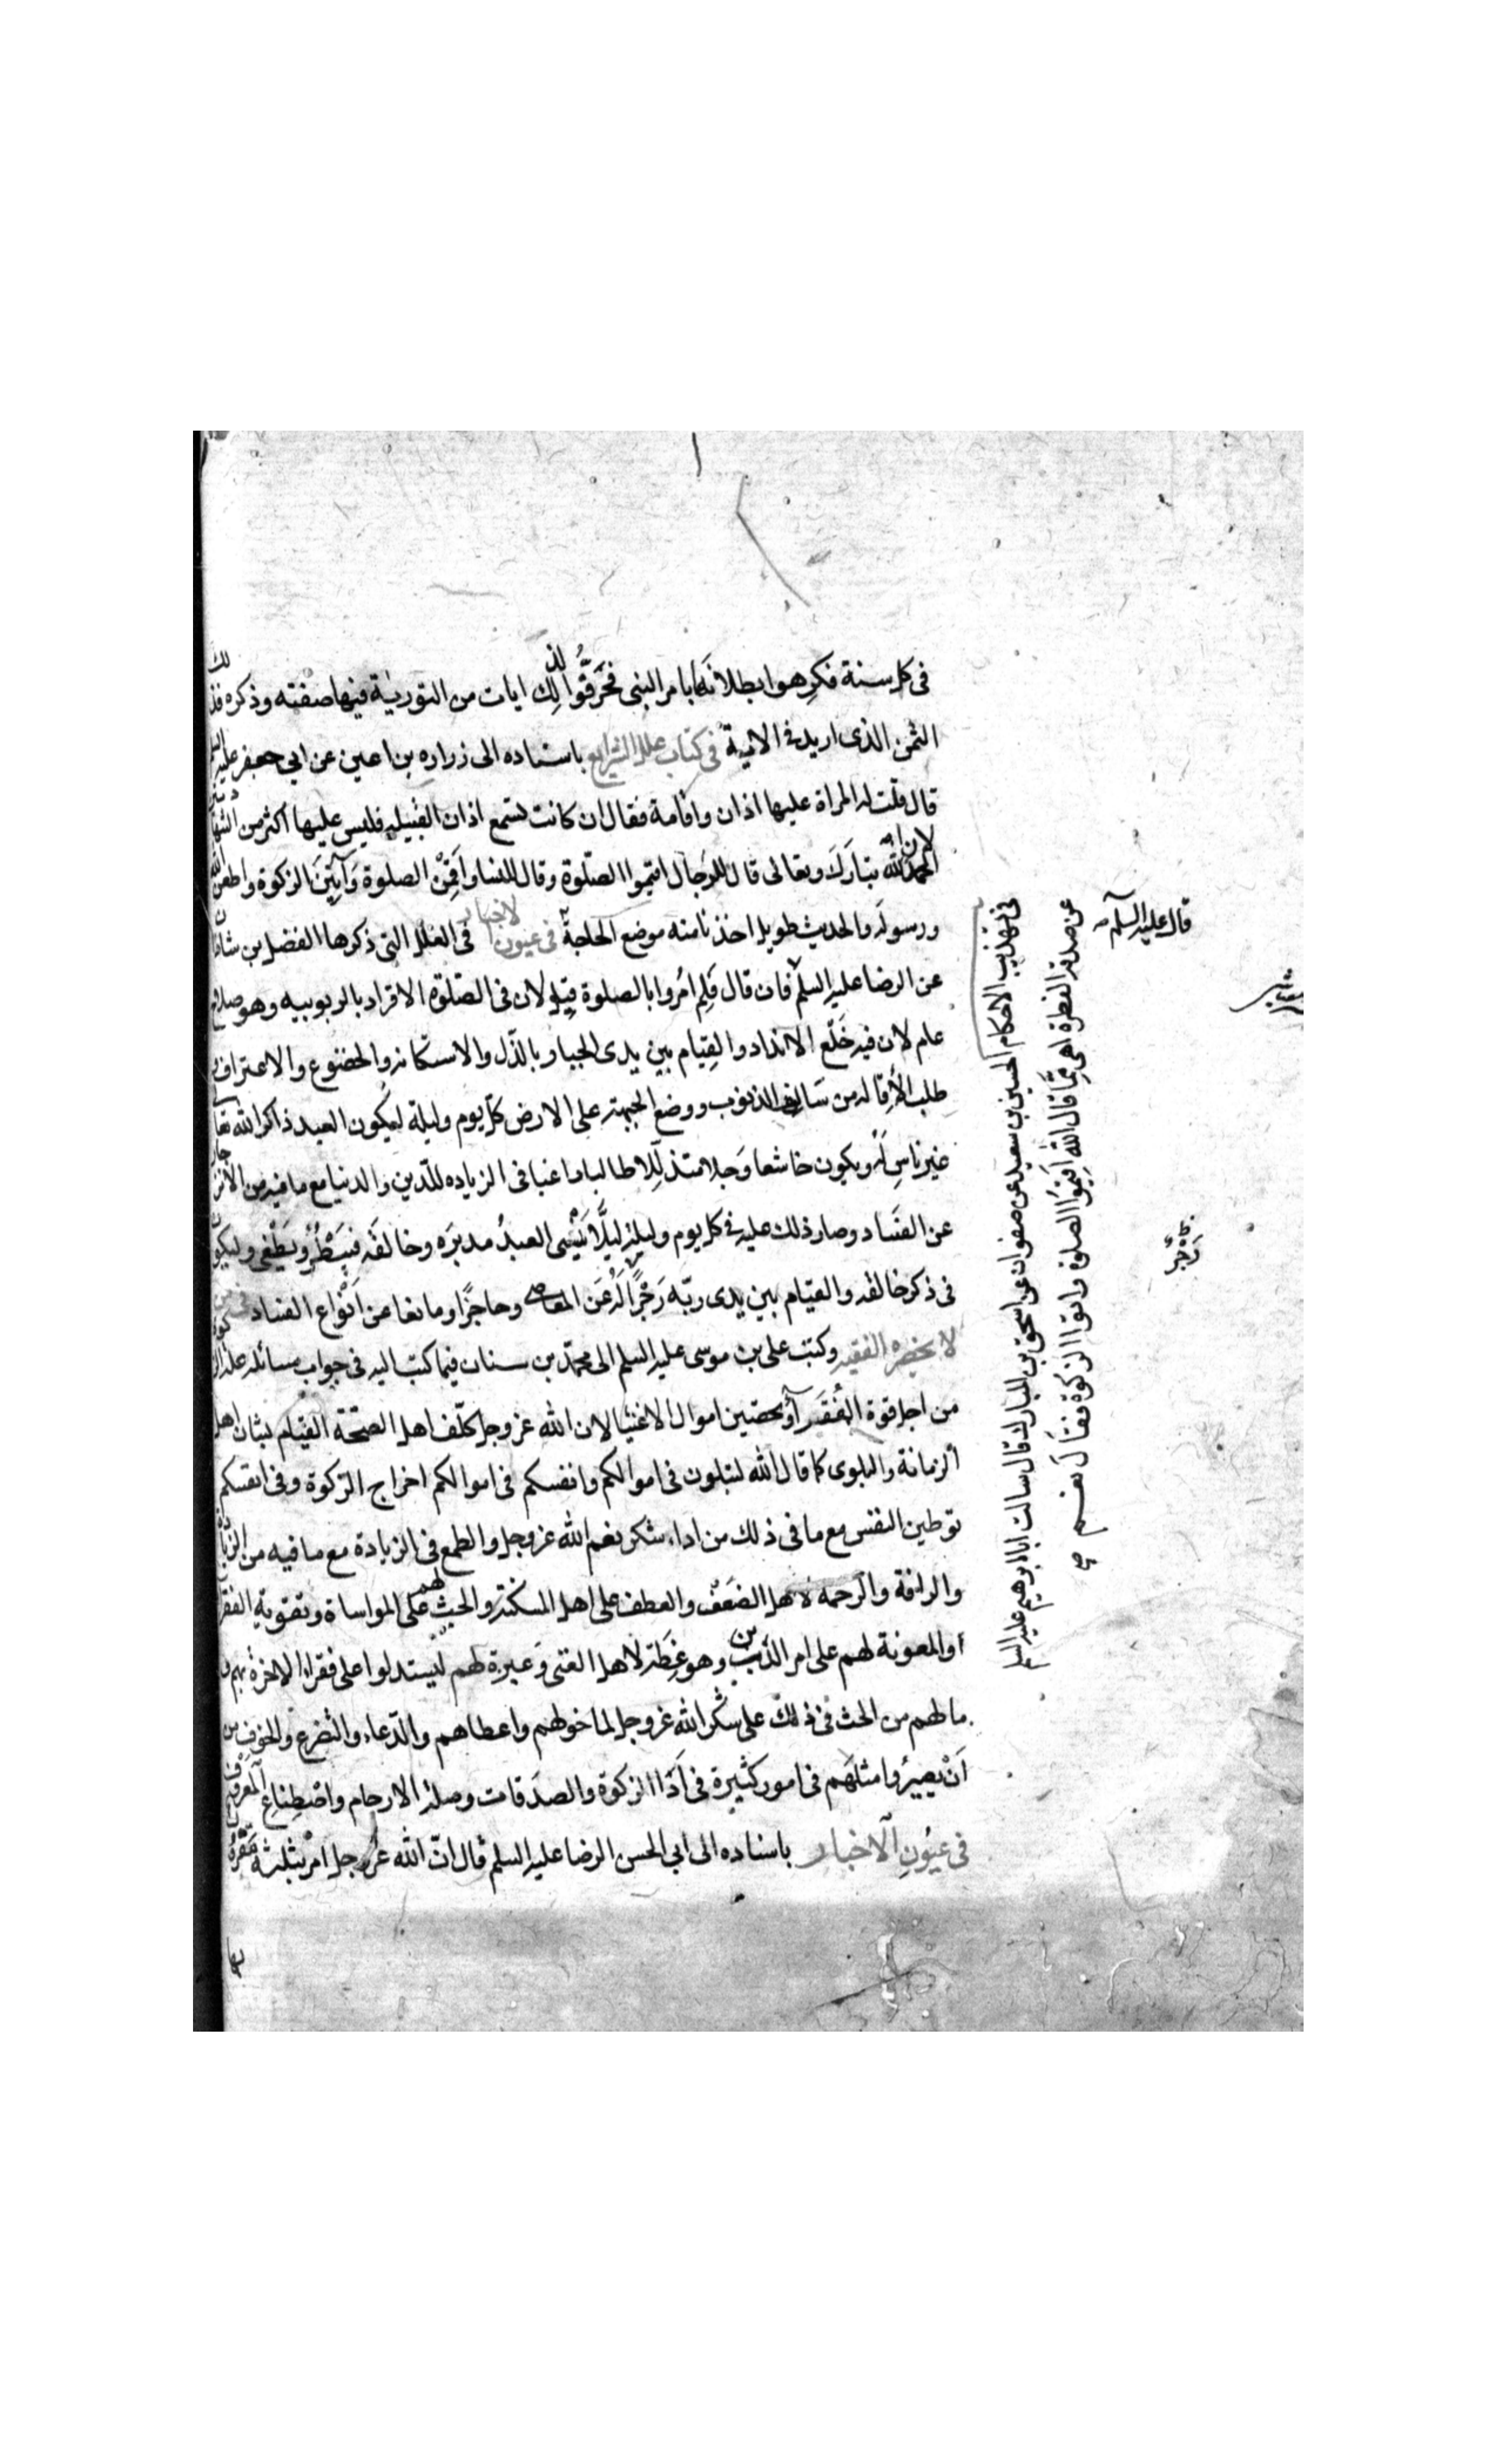 فى كل سنة فكرهوا بطلانها بامر النبى فحرفوا لذلك ايات من التورية فيها صفته وذكره فذلك
الثمن الذى اريد فى الاية فى كتاب علل الشرايع باسناده الى زراره بن اعين عن ابى جعفر عليه السلم
قال قلت له المراة عليها اذان واقامة فقال ان كانت تسمع اذان القبيله فليس عليها اكثر من الشهادتين
لان الله تبارك وتعالى قال للرجال اقيموا الصلوة وقال للنسا واقمن الصلوة وآتين الزكوة واطعن الله
ورسوله والحديث طويل اخذنا منه موضع الحاجة فى عيون الاخبار فى العلل التى ذكرها الفضل بن شاذان
عن الرضا عليه السلم فان قال فلم امروا بالصلوة قيل لان فى الصلوة الاقرار بالربوبيه وهو صلاح
عام لان فيه خلع الانداد والقيام بين يدى الجبار بالذل والاستكانه والخضوع والاعتراف و
طلب الاقاله من سالف الذنوب ووضع الجبهة على الارض كل يوم وليلة ليكون العبد ذاكرا لله تعالى
غير ناس له ويكون خاشعا وجلا متذللا طالبا راغبا فى الزياده للدين والدنيا مع ما فيه من الانزجار
عن الفساد وصار ذلك عليه فى كل يوم وليلة ليلا ينسى العبد مدبره وخالقه فيبطر ويطغى وليكون
فى ذكر خالقه والقيام بين يدى ربه زجرا له عن المعاصى وحاجزا ومانعا عن انواع الفساد فى من
لا يحضره الفقيه وكتب على بن موسى عليه السلم الى محمد بن سنان فيما كتب اليه فى جواب مسائله علة الزكوة
من اجل قوة الفقرآ وتحصين اموال الاغنيا لان الله عز وجل كلف اهل الصحة القيام بشان اهل
الزمانة والبلوى كما قال الله لتبلون فى اموالكم وانفسكم فى اموالكم اخراج الزكوة وفى انفسكم
توطين النفس مع ما فى ذلك من اداء شكر نعم الله عز وجل والطمع فى الزيادة مع ما فيه من الزيادة
والرافة والرحمة لاهل الضعف والعطف على اهل المسكنة والحث لهم على المواساة وتقوية الفقرا
والمعونة لهم على امر الدين وهو عظة لاهل الغنى وعبرة لهم ليستدلوا على فقراء الاخرة بهم و
مالهم من الحث فى ذلك على شكر الله عز وجل لما خولهم واعطاهم والدعاء والتضرع والخوف من
ان يصيروا مثلهم فى امور كثيرة فى اداا الزكوة والصدقات وصلة الارحام واصطناع المعروف
فى عيون الاخبار باسناده الى ابى الحسن الرضا عليه السلم قال ان الله عز وجل امر بثلثة
فى تهذيب الاحكام الحسين بن سعيد عن صفوان عن اسحق بن المبارك قال سالت ابا ابرهيم عليه السلم
عن صدقة الفطرة اهى مما قال الله اقيموا الصلوة واتوا الزكوة فقال نعم
قال عليه السلم